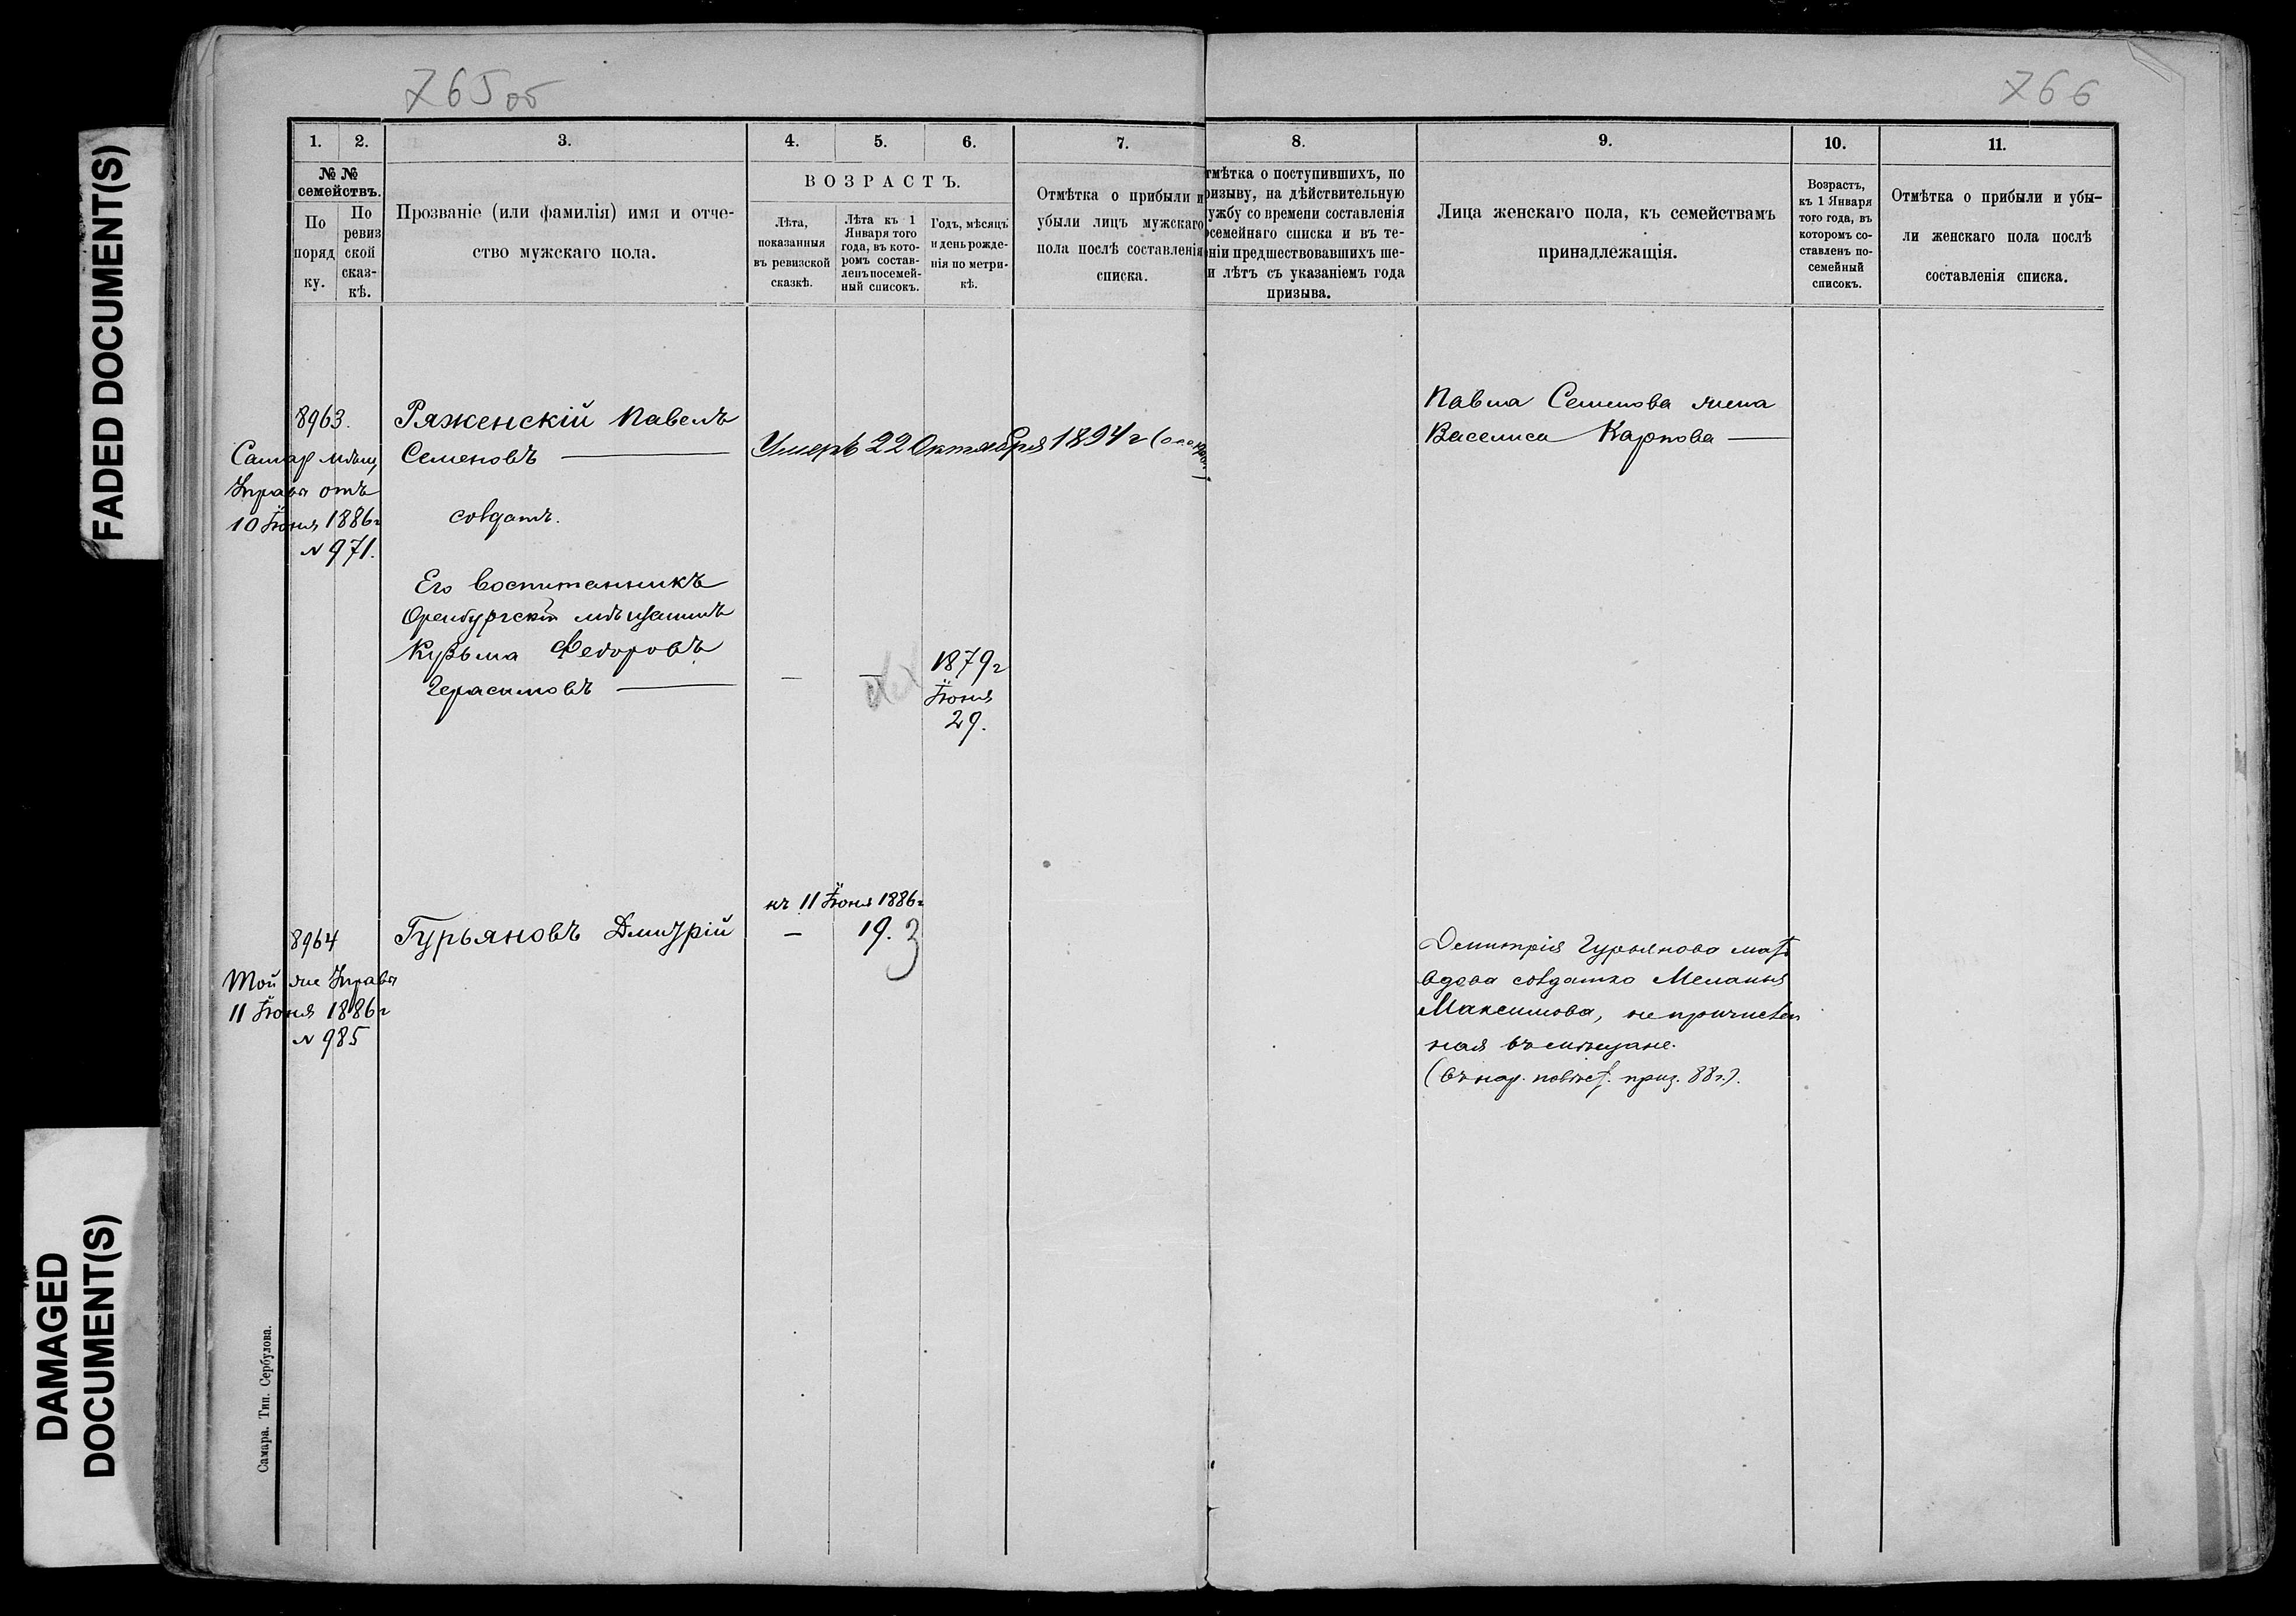 FADED DOCUMENT(S)
DAMAGED
DOCUMENT(S)
765об
766
1.
2.
3.
4.
5.
6.
7.
8.
9.
10.
11.
№ №
семействъ.
По
поряд
ку.
По
ревиз
ской
сказ-
кѣ.
Прозваніе (или фамилія) имя и отче-
ство мужскаго пола.
ВОЗРАСТЪ.
Лѣта,
показанныя
въ ревизской
сказкѣ.
Лѣта къ 1
Января того
года, въ кото-
ромъ состав-
ленъ посемей-
ный списокъ.
Годъ, мѣсяцъ
и день рожде-
нія по метри-
кѣ.
Отмѣтка о прибыли и
убыли лицъ мужскаго
пола послѣ составленія
списка.
тмѣтка о поступившихъ, по
ризыву, на дѣйствительную
ужбу со времени составленія
осемейнаго списка и въ те-
ніи предшествовавшихъ ше-
и лѣтъ съ указаніемъ года
призыва.
Лица женскаго пола, къ семействамъ
принадлежащія.
Возрастъ,
къ 1 Января
того года, въ
которомъ со-
ставленъ по-
семейный
списокъ.
Отмѣтка о прибыли и убы-
ли женскаго пола послѣ
составленія списка.
8963.
Самар мѣщ
Управы отъ
10 Іюня 1886г
№ 971.
Ряженскій Павелъ
Семеновъ
солдатъ.
Умеръ 22 Октября 1894 г
Павла Семенова жена
Василиса Карпова
Его воспитанникъ
Оренбургскій мѣщанинъ
Кузьма Федоровъ
Герасимовъ
— —
1879г
Іюня
29.
къ 11 Іюня 1886г
8964
Той же Управы
11 Іюня 1886г
№ 985
Гурьяновъ Дмитрій
— 19. 3
Демитрія Гурьянова мать
вдова солдатка Меланья
Максимова, не причислен
ная въ мѣщане.
(въ нар. повѣст. приз. 88 г.).
Самара. Тип. Сербулова.